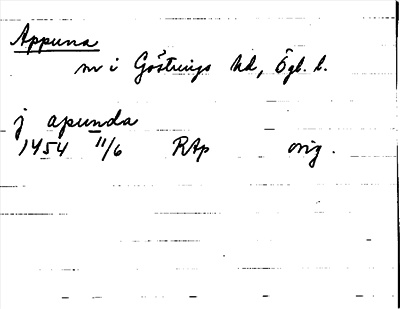 Appuna
m i Göstrings hd, Ögl. l.
j apunda
1454 11/6 RAp orig.